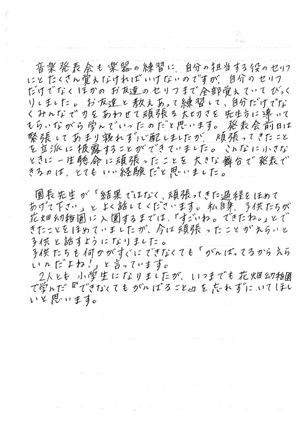 音楽発表会も楽器の練習に、自分の担当する役のセリフ
にとたくさん覚えなければいけないのですが、自分のセリフ
だけでなくほかのお友達のセリフまで全部覚えていてびっく
りしました。お友達と教えあって練習して、自分だけでな
くみんなで力をあわせて頑張る大切さを先生方に導いて
もらいながら学んでいったのだと思います。発表会前日は
緊張してあまり眠れずに心配しましたが、頑張ってきたこと
を立派に披露することができていました。こんなに小さな
ときに一生懸命に頑張ったことを大きな舞台で発表で
きるのは、とてもいい経験だと思いました。
園長先生が「結果ではなく、頑張ってきた過程をほめて
あげて下さい。」とよく話してくださいます。私自身、子供たちが
花畑幼稚園に入園するまでは、「すごいね。できたね。」とで
きたことをほめていましたが、今は頑張ったことがえらいと
子供と話すようになりました。
子供たちも何かがすぐにできなくても「がんばってるからえら
いんだよね!」と言っています。
2人とも小学生になりましたが、いつまでも花畑幼稚園
で学んだ『できなくてもがんばること』を忘れずにいてほし
いと思います。